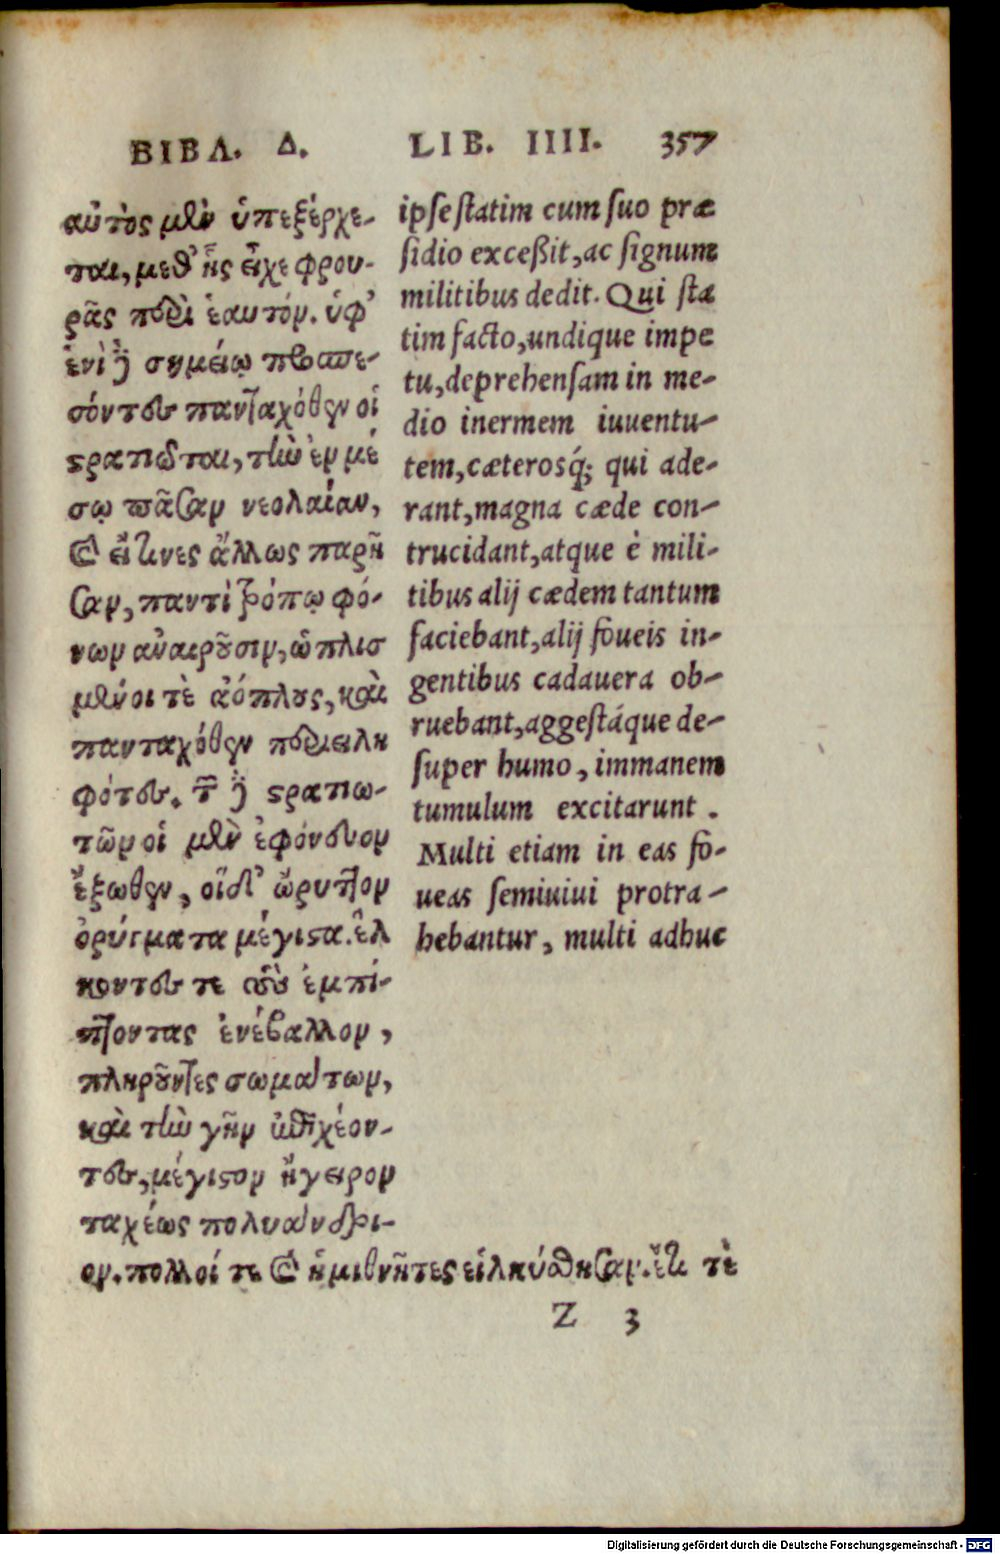 ΒΙΒΛ. Δ.
αὐτὸς μὲν ὑπεξέρχε-
ται, μεθ' ἧς εἶχε φρου-
ρᾶς περὶ ἑαυτόν. ὑφ'
ἑνὶ δὲ σημείῳ προσπε-
σόντες πανταχόθεν οἱ
στρατιῶται, τὴν ἐν μέ
σῳ πᾶσαν νεολαίαν,
καὶ εἴτινες ἄλλως παρῆ
σαν, παντὶ τρόπῳ φό-
νων ἀναιροῦσιν, ὡπλισ
μένοι τὲ ἀόπλους, καὶ
πανταχόθεν περιειλη
φότες. τῶν δὲ στρατιω-
τῶν οἱ μὲν ἐφόνευον
ἔξωθεν, οἱ δ' ὤρυττον
ὀρύγματα μέγιστα. ἕλ
κοντές τε τοὺς ἐμπί-
πτοντας ἐνέβαλλον,
πληροῦντες σωμάτων,
καὶ τὴν γῆν ἐπιχέον-
τες, μέγιστον ἤγειρον
ταχέως πολυάνδρι-
ον. πολλοί τε καὶ ἡμιθνῆτες εἱλκύσθησαν. ἔτι τὲ
LIB. IIII. 357
ipse statim cum suo præ
sidio exceßit, ac signum
militibus dedit. Qui sta
tim facto, undique impe
tu, deprehensam in me-
dio inermem iuuentu-
tem, cæterosq́; qui ade-
rant, magna cæde con-
trucidant, atque è mili-
tibus alij cædem tantum
faciebant, alij foueis in-
gentibus cadauera ob-
ruebant, aggestáque de-
super humo, immanem
tumulum excitarunt.
Multi etiam in eas fo-
ueas semiuiui protra-
hebantur, multi adhuc
Z 3
Digitalisierung gefördert durch die Deutsche Forschungsgemeinschaft - DFG